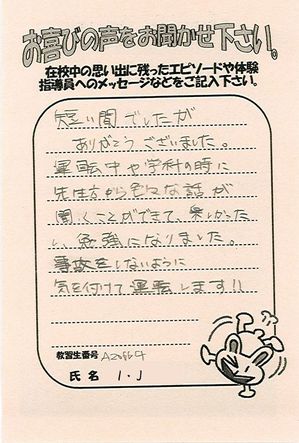 お喜びの声をお聞かせ下さい。
在校中の思い出に残ったエピソードや体験
指導員へのメッセージなどをご記入下さい。
短い間でしたが
ありがとうございました。
運転中や学科の時に
先生方から色々な話が
聞くことができて、楽しかった
し、勉強になりました。
事故をしないように
気を付けて運転します!!
教習生番号
氏名 I.J